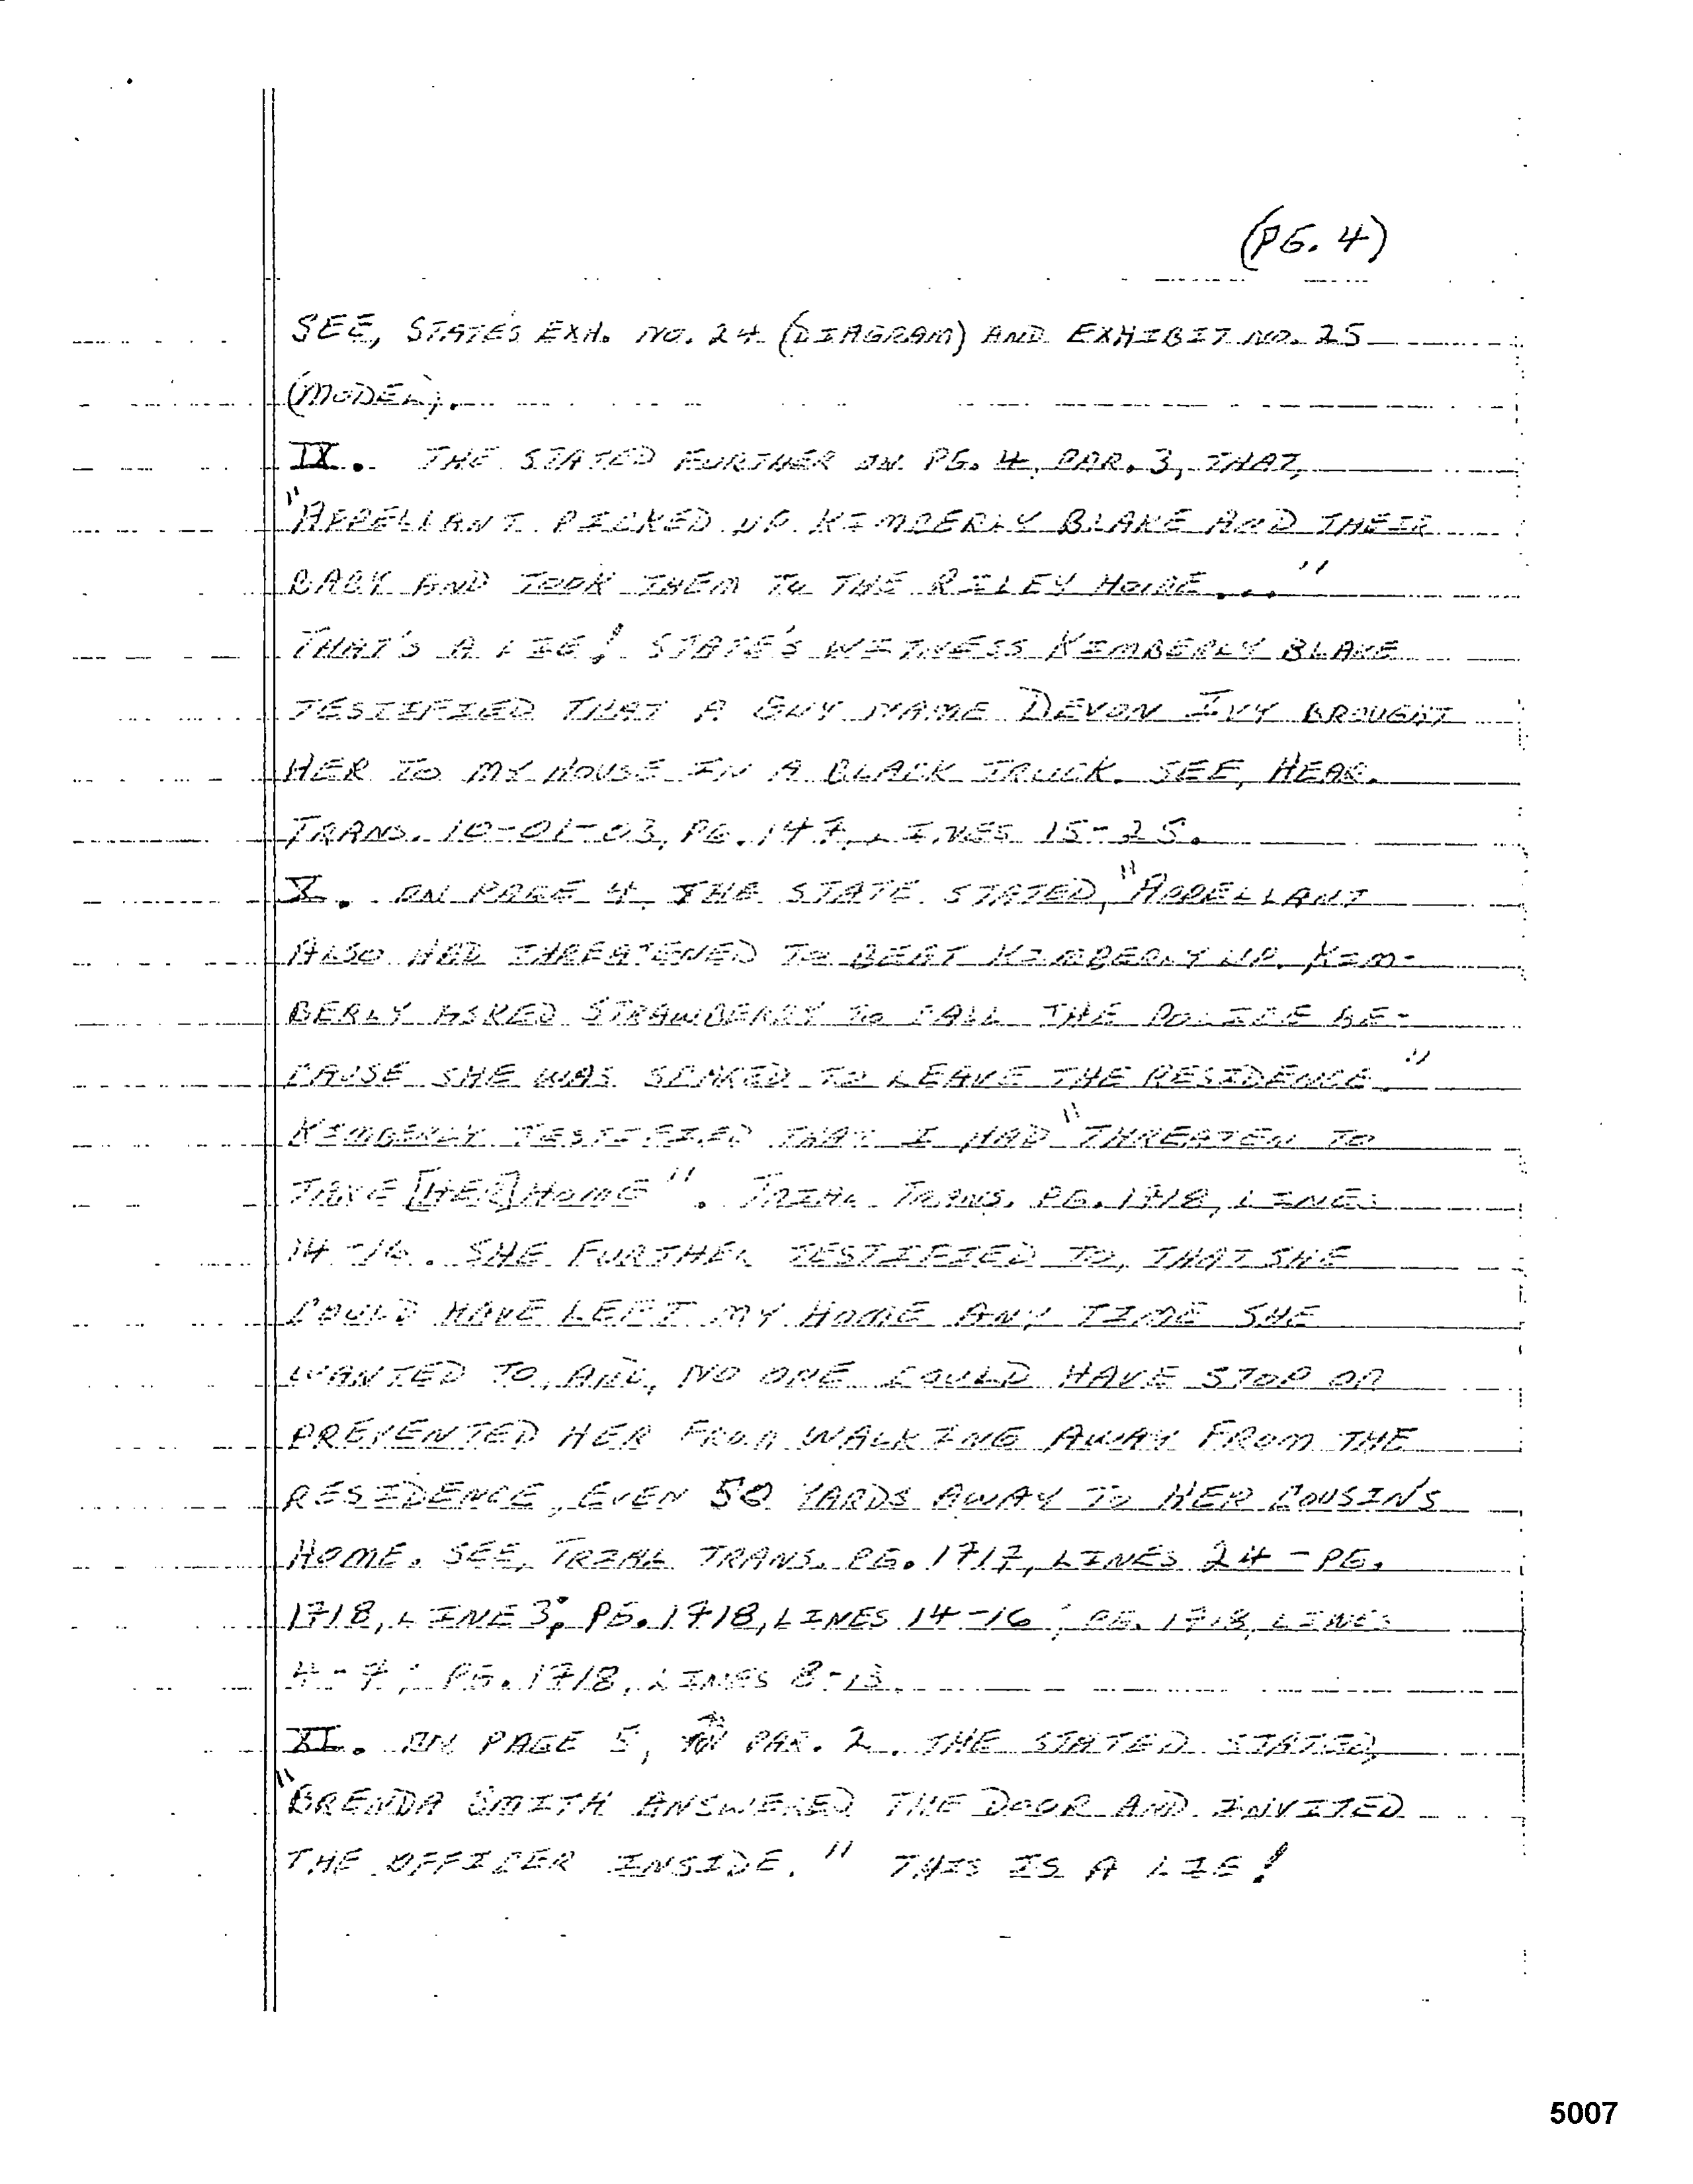 (PG. 4)
SEE, STATE'S EXH. NO. 24 (DIAGRAM) AND EXHIBIT NO. 25
(MODEL).
IX. THE STATED FURTHER ON PG. 4, PAR. 3, THAT,
"APPELLANT PICKED UP KIMBERLY BLAKE AND THEIR
BABY AND TOOK THEM TO THE RILEY HOME..."
THAT'S A LIE! STATE'S WITNESS KIMBERLY BLAKE
TESTIFIED THAT A GUY NAME DEVON IVY BROUGHT
HER TO MY HOUSE IN A BLACK TRUCK. SEE, HEAR.
TRANS. 10-01-03, PG. 147, LINES 15-25.
X. ON PAGE 4, THE STATE STATED, "APPELLANT
ALSO HAD THREATENED TO BEAT KIMBERLY UP. KIM-
BERLY ASKED STRAWBERRY TO CALL THE POLICE BE-
CAUSE SHE WAS SCARED TO LEAVE THE RESIDENCE."
KIMBERLY TESTIFIED THAT I HAD "THREATEN TO
TAKE [HER] HOME". TRIAL TRANS. PG. 1718, LINES
14-16. SHE FURTHER TESTIFIED TO, THAT SHE
COULD HAVE LEFT MY HOME ANY TIME SHE
WANTED TO, AND, NO ONE COULD HAVE STOP OR
PREVENTED HER FROM WALKING AWAY FROM THE
RESIDENCE, EVEN 50 YARDS AWAY TO HER COUSIN'S
HOME. SEE, TRIAL TRANS. PG. 1717, LINES 24 - PG.
1718, LINE 3; PG. 1718, LINES 14-16; PG. 1718, LINES
4-7; PG. 1718, LINES 8-13.
XI. ON PAGE 5, PAR. 2. THE STATED STATED,
"BRENDA SMITH ANSWERED THE DOOR AND INVITED
THE OFFICER INSIDE." THIS IS A LIE!
5007